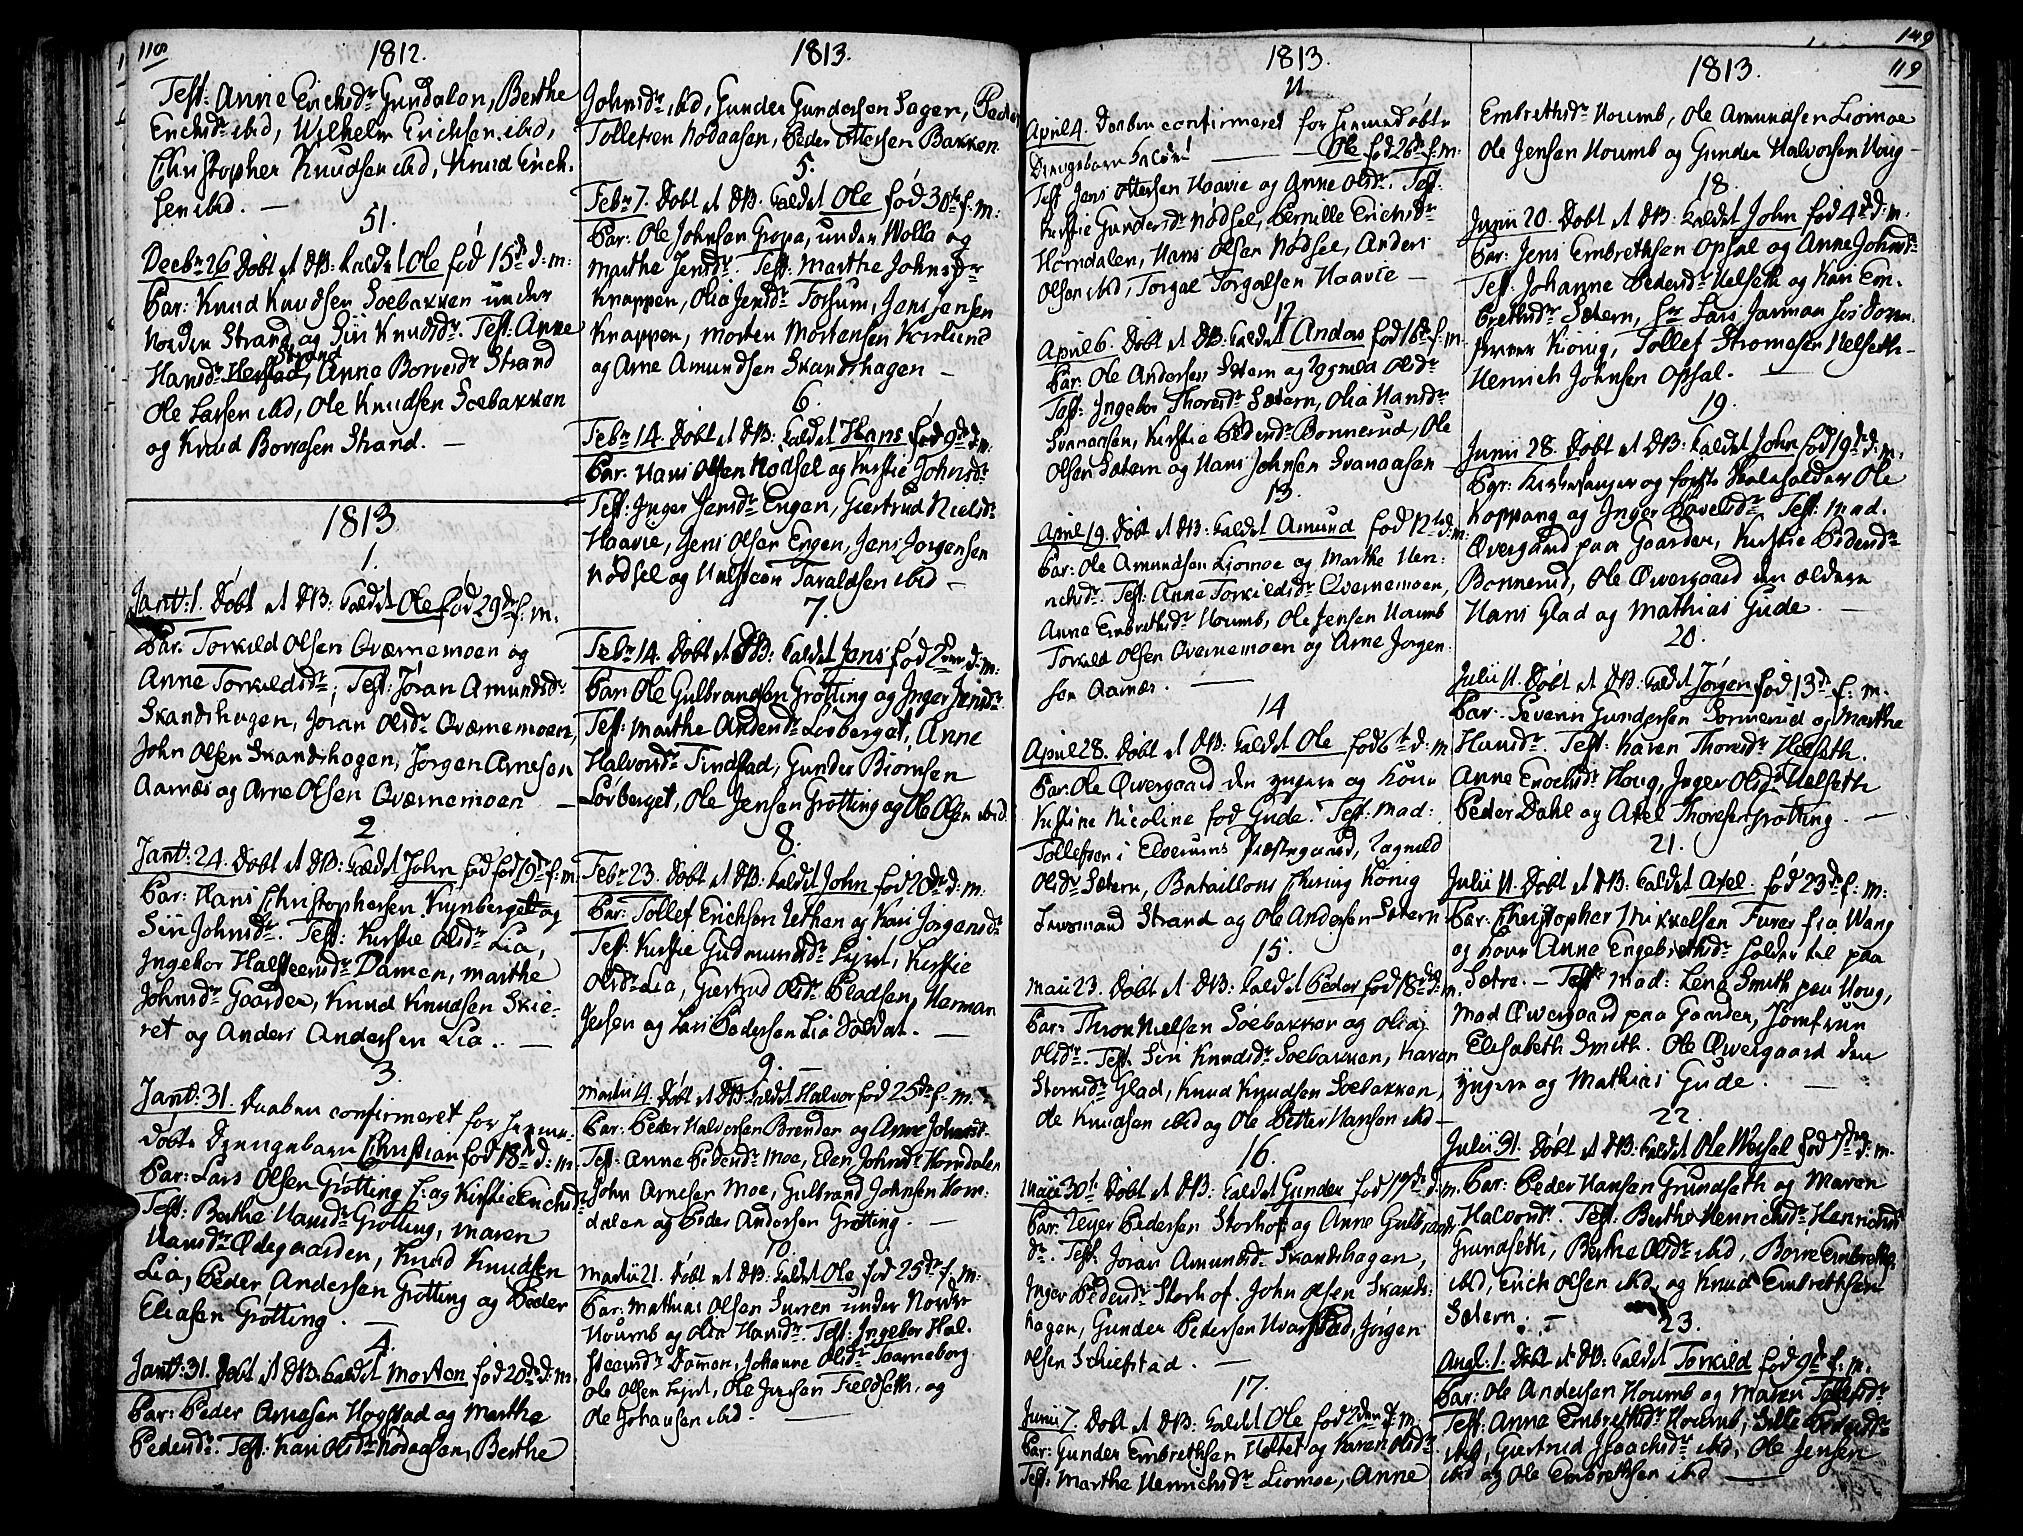 118
1812.
Test: Anne Erichsdr Gundalon, Berthe
Erichsdr ibid, Wilhelm Erichsen ibid,
Christopher Knudsen ibid, Knud Erich-
sen ibid. —
51.
Decbr 26 Døbt et DB: kaldet Ole fød 15de d: m:
Par: Knud Knudsen Soebakken under
Norden Strand og Siri Knudsdr. Test: Anne
Strand
Hansdr Herstad, Anne Borresdr Strand
Ole Larsen ibid, Ole Knudsen Soebakken
og Knud Borresen Strand. —
1813.
1.
Jantr: 1. Døbt et DB: kaldet Ole fød 29de f: m.
Par: Torkild Olsen Qværnemoen og
Anne Torkildsdr; Test: Jøran Amundsdr
Skandshagen, Jøran Olsdr Qværnemoen,
John Olsen Skandshagen, Jørgen Arnesen
Aarnæs og Arne Olsen Qværnemoen —
2
Jantr: 24. Døbt et DB: kaldet John fød fød 19de f: m:
Par: Hans Christophersen Kynberget og
Siri Johnsdr. Test: Kirstie Olsdr Lia,
Ingebor Halsteensdr Damen, Marthe
Johnsdr Gaarder, Knud Knudsen Skie-
ret og Anders Andersen Lia. —
3.
Jantr: 31. Daaben confirmeret for hjemme-
døbte Drengebarn Christian fød 18de d: m.
Par: Lars Olsen Grøtting f: og Kirstie Erichsdr
Test: Berthe Hansdr Grøtting, Maren
Hansdr Ødegaarden, Knud Knudsen
Lia, Peder Andersen Grøtting og Peder
Eliasen Grøtting. —
4.
Jantr: 31. Døbt et DB: kaldet Morten fød 20de d: m.
Par: Peder Arnesen Hogstad og Marthe
Pedersdr. Test: Kari Olsdr Nodaasen, Berthe
1813.
Johnsdr ibid, Gunder Gundersen Sager, Peder
Tollefsen Nodaasen, Peder Ottersen Bakken
5.
Febr 7. Døbt et DB: kaldet Ole fød 30te f: m:
Par: Ole Johnsen Gropa, under Wolla og
Marthe Jensdr. Test: Marthe Johnsdr
Knappen, Olia Jensdr Fossum, Jens Jensen
Knappen, Morten Mortensen
og Arne Amundsen Skandshagen —
6.
Febr 14. Døbt et DB: kaldet Hans fød 9de d: m:
Par: Hans Olsen Nødsel og Kirstie Johnsdr
Test: Inger Jensdr Engen, Giertrud Nielsdr
Haavie, Jens Olsen Engen, Jens Jørgensen
Nødsel og Halsteen Taraldsen ibid —
7.
Febr 14. Døbt et DB: kaldet Jens fød 2den d: m:
Par: Ole Gulbrandsen Grøtting og Inger Jensdr
Test: Marthe Andersdr Løvberget, Anne
Halvorsdr Tindstad, Gunder Biørnsen
Løvberget, Ole Jensen Grøtting og Ole Olsen ibid.
8.
Febr 23. Døbt et DB: kaldet John fød 20de d: m:
Par: Tollef Erichsen Lethen og Kari Jørgensdr
Test: Kirstie Gudmundsdr Lyset, Kirstie
Olsdr Lia, Giertrud Olsdr Pladsen, Herman
Jensen og Lars Pedersen Lia Soldat. —
9.
Martii 4. Døbt et DB: kaldet Halvor fød 25de f: m.
Par: Peder Halvorsen Brenden og Anne Johansdr
Test: Anne Pedersdr Moe, Elen Johnsdr Horndalen
John Arnesen Moe, Gulbrand Johnsen Horn-
dalen og Peder Andersen Grøtting. —
10.
Martii 21. Døbt et DB: kaldet Ole fød 25de f: m:
Par: Mathias Olsen Surren under Nordre
Houmb og Olia Hansdr. Test: Ingebor Hal-
steensdr Dammen, Johanne Olsdr Taarneborg
Ole Olsen Lyset, Ole Jensen Fieldseth, og
Ole Johansen ibid. —
149
119
1813.
11
April 4. Daaben confirmeret for hiemmedøbte
Drengebarn kaldet — Ole fød 26de f: m.
Test Jens Ottersen Haavie og Anne Olsdr. Test:
Kirstie Gundersdr Nødsel, Pernille Erichsdr
Horndalen, Hans Olsen Nødsel, Anders
Olsen ibid, Torgal Torgalsen Haavie —
12
April 6. Døbt et DB: kaldet Andreas fød 16de f: m.
Par: Ole Andersen Sætern og Ragnild Olsdr
Test: Ingebor Thoresdr Sætern, Olia Hansdr
Svenaasen, Kirstie Pedersdr Bonnerud, Ole
Olsen Sætern og Hans Johnsen Svenaasen —
13.
April 19. Døbt et DB: kaldet Amund fød 12te d: m.
Par: Ole Amundsen Liomoe og Marthe Hen-
richsdr. Test: Anne Torkildsdr Qvernemoen,
Anne Embrethsdr Houmb, Ole Jensen Houmb
Torkild Olsen Qvernemoen og Arne Jørgen-
sen Aarnæs. —
14
April 28. Døbt et DB: kaldet Ole fød 6te d: m
Par: Ole Qvergaard den yngere og Kone
Kirstine Nicoline fød Gude. Test: Mad:
Tollefsen i Elverums Præstegaard, Ragnild
Olsdr Sætern, Bataillons Chirurg König
Strand og Ole Andersen Sætern
15.
Maii 23. Døbt et DB: kaldet Peder fød 18de d: m.
Par: Thron Nielsen Soebakken og Olia
Olsdr. Test. Siri Knudsdr Soebakken, Karen
Glad, Knud Knudsen Soebakken,
Ole Knudsen ibid og Ole Petter Hansen ibid —
16.
Maii 30te Døbt et DB: kaldet Gunder fød 19de d: m.
Par: Reyer Pedersen Storhof og Anne Gulbrands-
dr. Test. Jøran Amundsdr Skandshagen,
Inger Pedersdr Storhof. John Olsen Skands-
hagen, Gunder Pedersen Hvarstad, Jørgen
Olsen Schiefstad. —
17.
Junii 7. Døbt et DB: kaldet Ole fød 2den d: m.
Par: Gunder Embrethsen Holtet og Karen Olsdr
Test: Marthe Henrichsdr Liomoe, Anne
1813.
Embrethsdr Houmb, Ole Amundsen Liomoe
Ole Jensen Houmb og Gunder Halvorsen Houg —
18.
Junii 20. Døbt et DB: kaldet John fød 4de d: m.
Par: Jens Embrethsen Opsal og Anne Johnsdr
Test: Johanne Pedersdr Helseth og Kari Em-
brethsdr Sætern, Hr Lars
König, Tollef Thomesen Helseth —
Henrich Johnsen Opsal. —
19.
Junii 28. Døbt et DB: kaldet John fød 19de d: m.
Par: Kirkesanger og første Skoleholder Ole
Koppang og Inger Povelsdr. Test: Mad.
Qvergaard paa Gaarder, Kirstie Pedersdr
Bonnerud, Ole Qvergaard den ældere
Hans Glad og Mathias Gude. —
20.
Julii 11. Døbt et DB. kaldet Jørgen fød 13de f: m.
Par. Severin Gundersen Sormerud og Marthe
Hansdr. Test: Karen Thoresdr Helseth.
Anne Enochsdr Houg, Inger Olsdr Helseth
Peder Dahl og Axel Thoresen Grøtting. —
21.
Julii 11. Døbt et DB: kaldet Axel fød 23de f: m:
Par: Christopher Mikkelsen Furer fra Wang
og Kone Anne Engebrethsdr holder til paa
Sætre. — Test: Mad: Lena Smith paa Houg,
Mad Qvergaard paa Gaarder, Jomfruen
Elisabeth Smith. Ole Qvergaard den
yngere og Mathias Gude. —
22.
Julii 31. Døbt et DB: kaldet Ole Wessel fød 7de d: m.
Par: Peder Hansen Grundseth og Maren
Halvorsdr. Test: Berthe Henrichsdr Henrichsdr
Grundseth, Berthe Olsdr ibid, Børre Embrethsen
ibid, Erich Olsen ibid, og Knud Embrethsen
Sætern. —
23.
Augl: 1. Døbt et DB: kaldet Torkild fød 9de f: m.
Par: Ole Andersen Houmb og Maren Tollefsdr
Test: Anne Embrethsdr Houmb, Sille Pedersdr
ibid, Giertrud Isaachsdr ibid, Ole Jensen
ibid og Ole Embrethsen ibid —